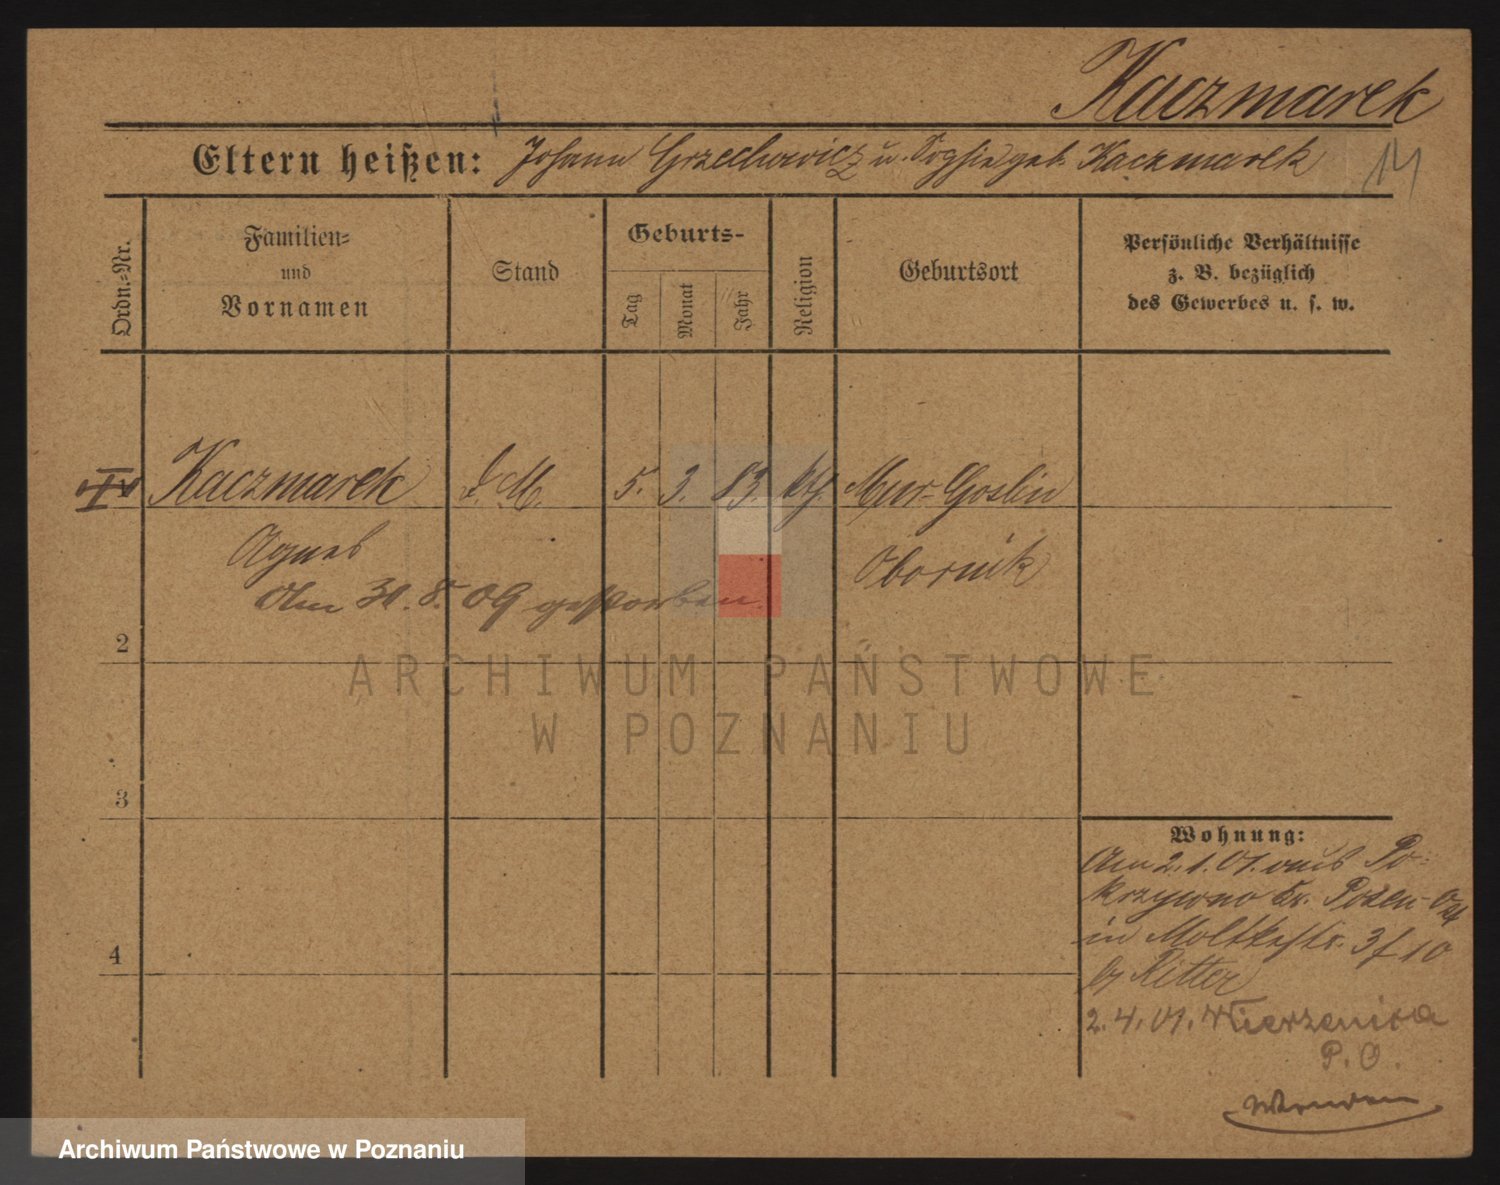 Kaczmarek
Eltern heißen: Johann Grzechowicz u. Sophie geb. Kaczmarek
14
Ordn.-Nr.
Familien-
und
Vornamen
Stand
Geburts-
Tag
Monat
Jahr
Religion
Geburtsort
Persönliche Verhältnisse
z. B. bezüglich
des Gewerbes u. s. w.
Kaczmarek D. M. 5. 3. 83. kth Mur-Goslin
Agnes Obornik
Am 30. 8. 09 gestorben.
2
3
4
Wohnung:
Am 2. 1. 01. aus Po-
krzywno Kr. Posen-Ost
in Moltkestr. 3 f 10
by Ritter
2. 4. 01. Wierzenica
P. O.
ARCHIWUM PAŃSTWOWE
W POZNANIU
Archiwum Państwowe w Poznaniu